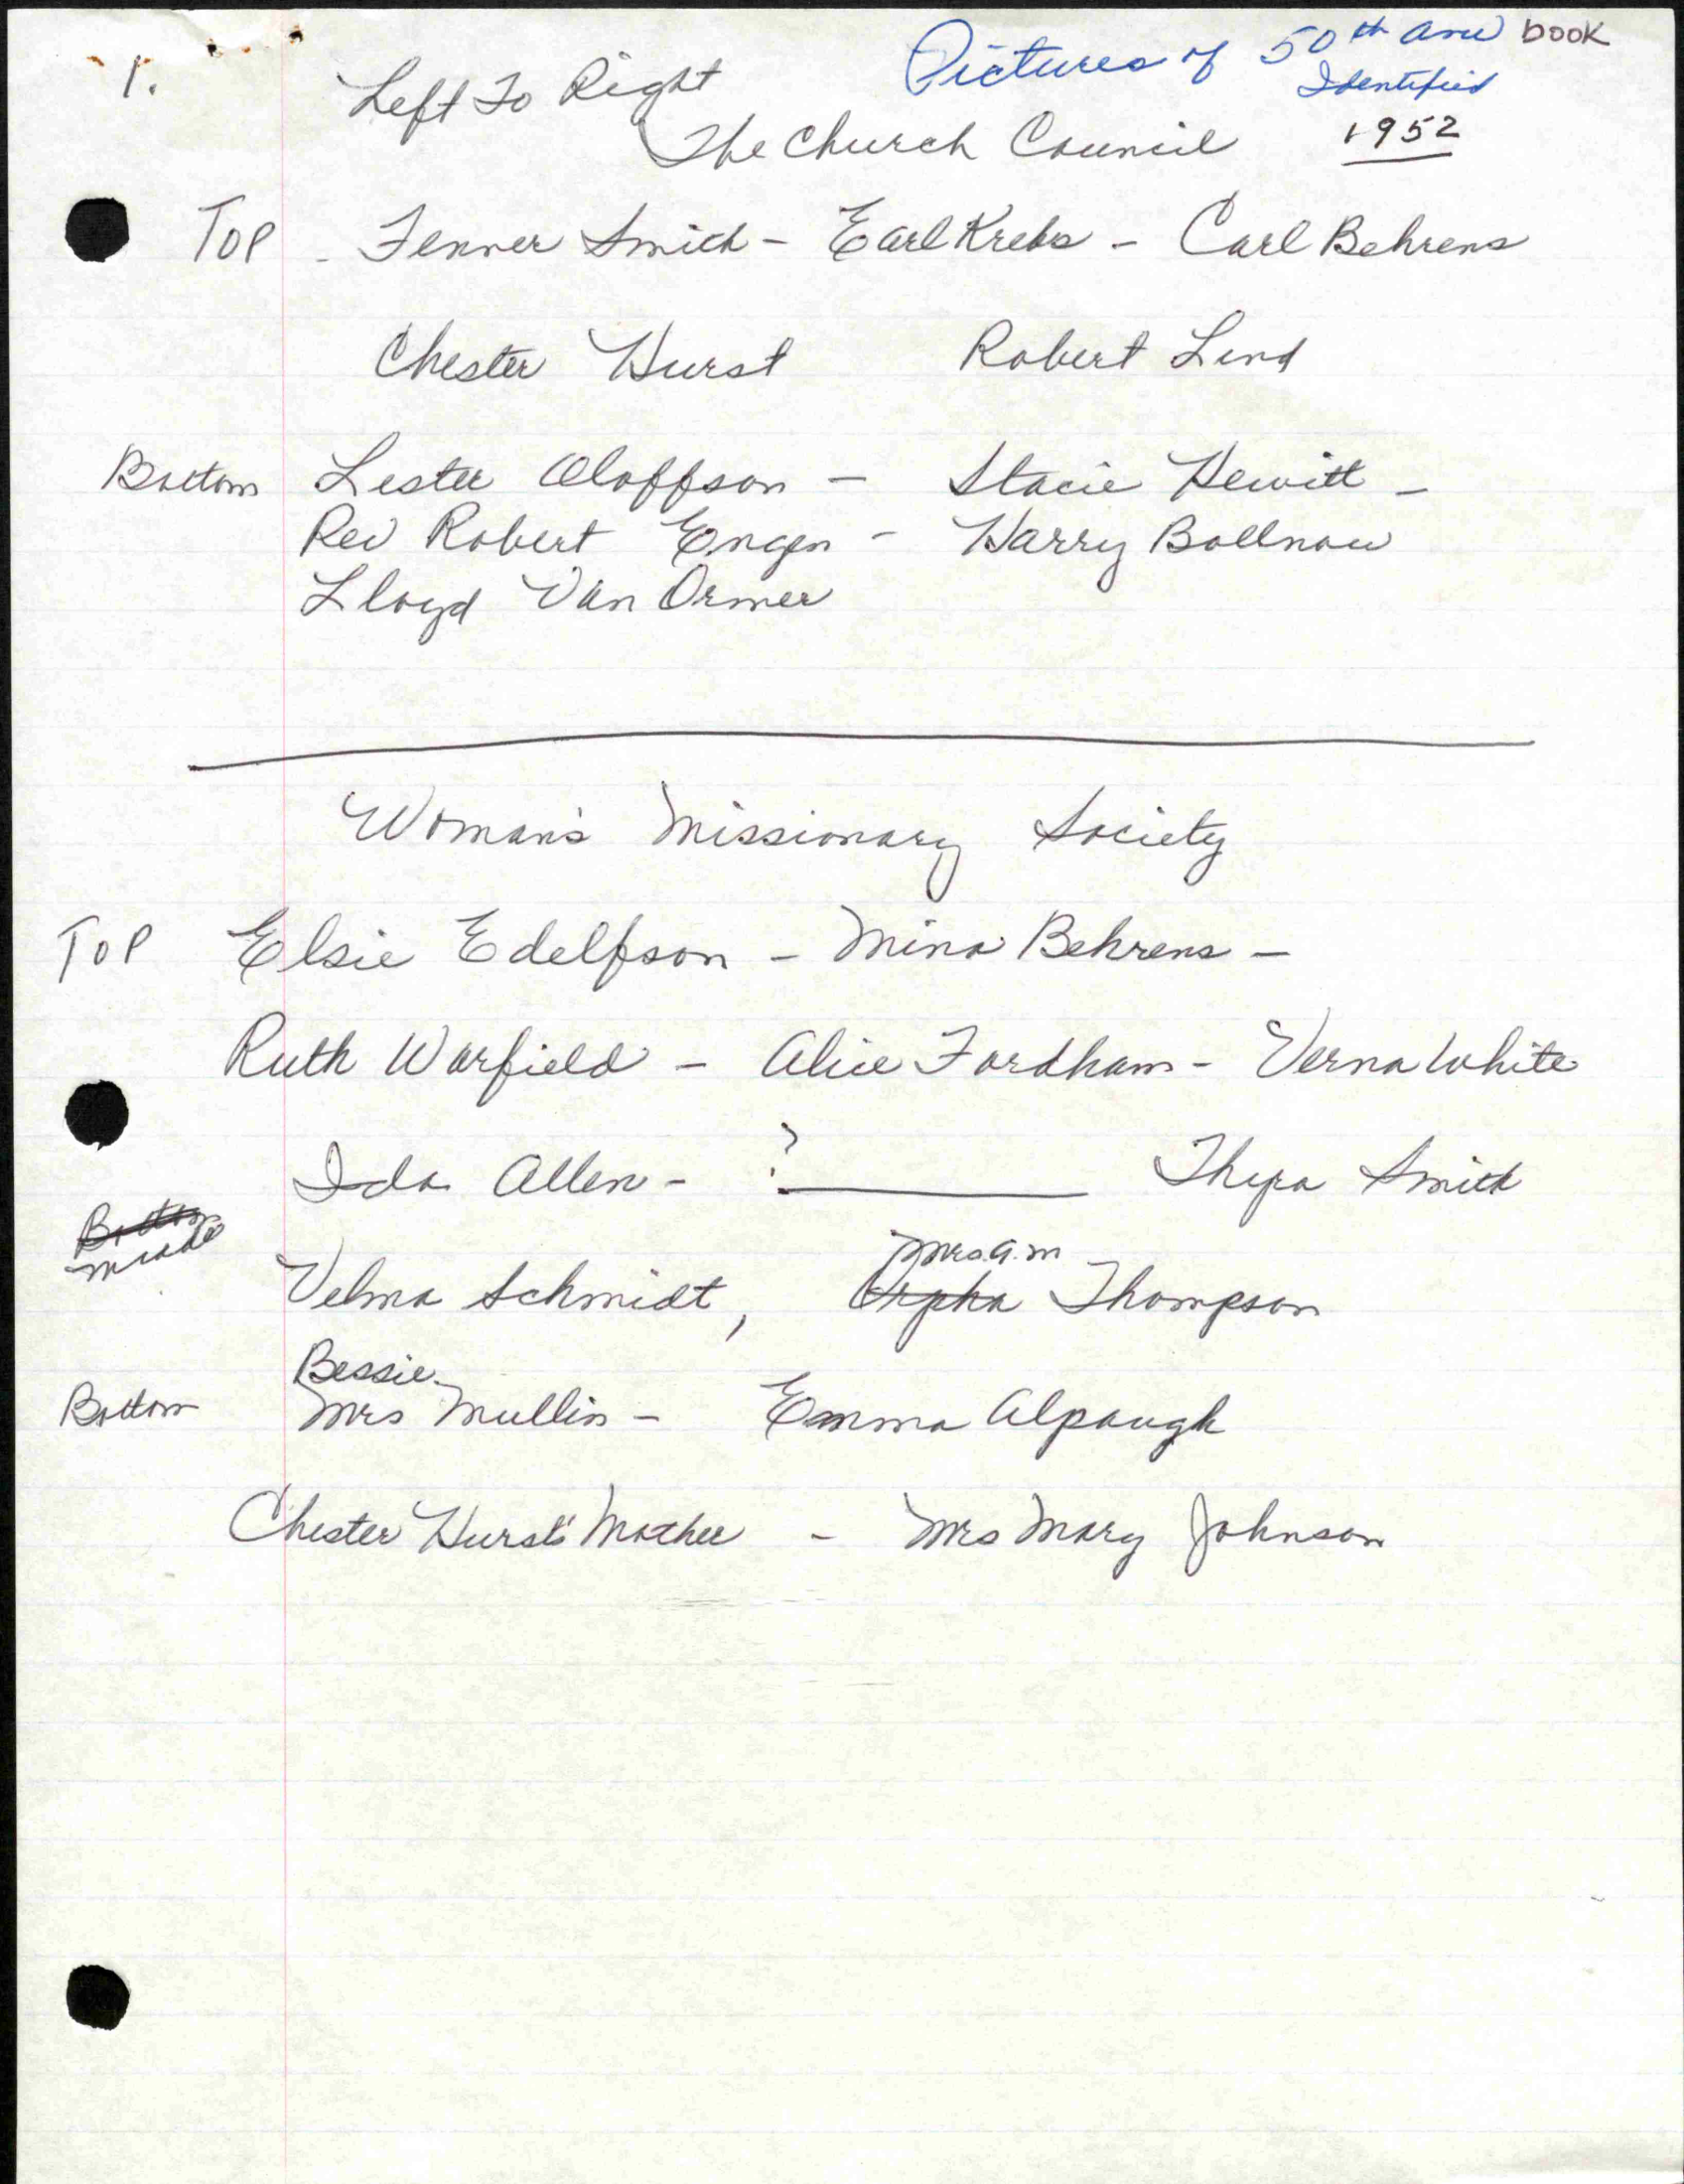 1.
Left To Right
Pictures of 50th Ann book
Identified
The Church Council
1952
Top - Fenner Smith - Earl Krebs - Carl Behrens
Chester Hurst Robert Lind
Bottom Lester Oloffson - Stacie Hewitt -
Rev Robert Engen - Harry Bollnow
Lloyd Van Ormer
Woman's Missionary Society
Top Elsie Edelfson - Mina Behrens -
Ruth Warfield - Alice Fordham - Verna White
Ida Allen - ? Thyra Smith
Bottom
Middle
Mrs. A. M
Velma Schmidt, Orpha Thompson
Bessie
Bottom Mrs Mullin - Emma Alpaugh
Chester Hurst's Mother - Mrs Mary Johnson